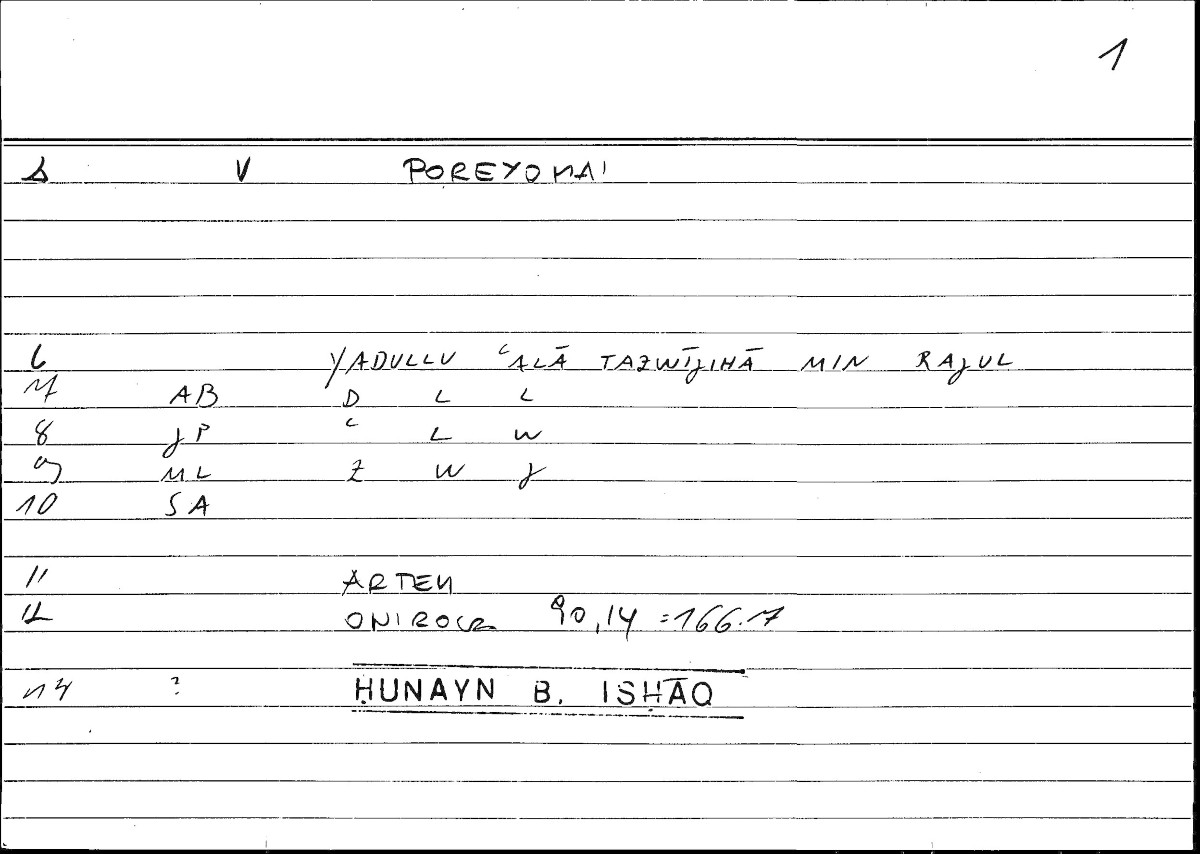 1
1 V POREYOMAI
6 YADULLU ʿALĀ TAZWĪJIHĀ MIN RAJUL
7 AB D L L
8 JP ʿ L W
9 ML Z W J
10 SA
11 ARTEM
12 ONIROCR 90,14 =166.7
14 ? ḤUNAYN B. ISḤĀQ